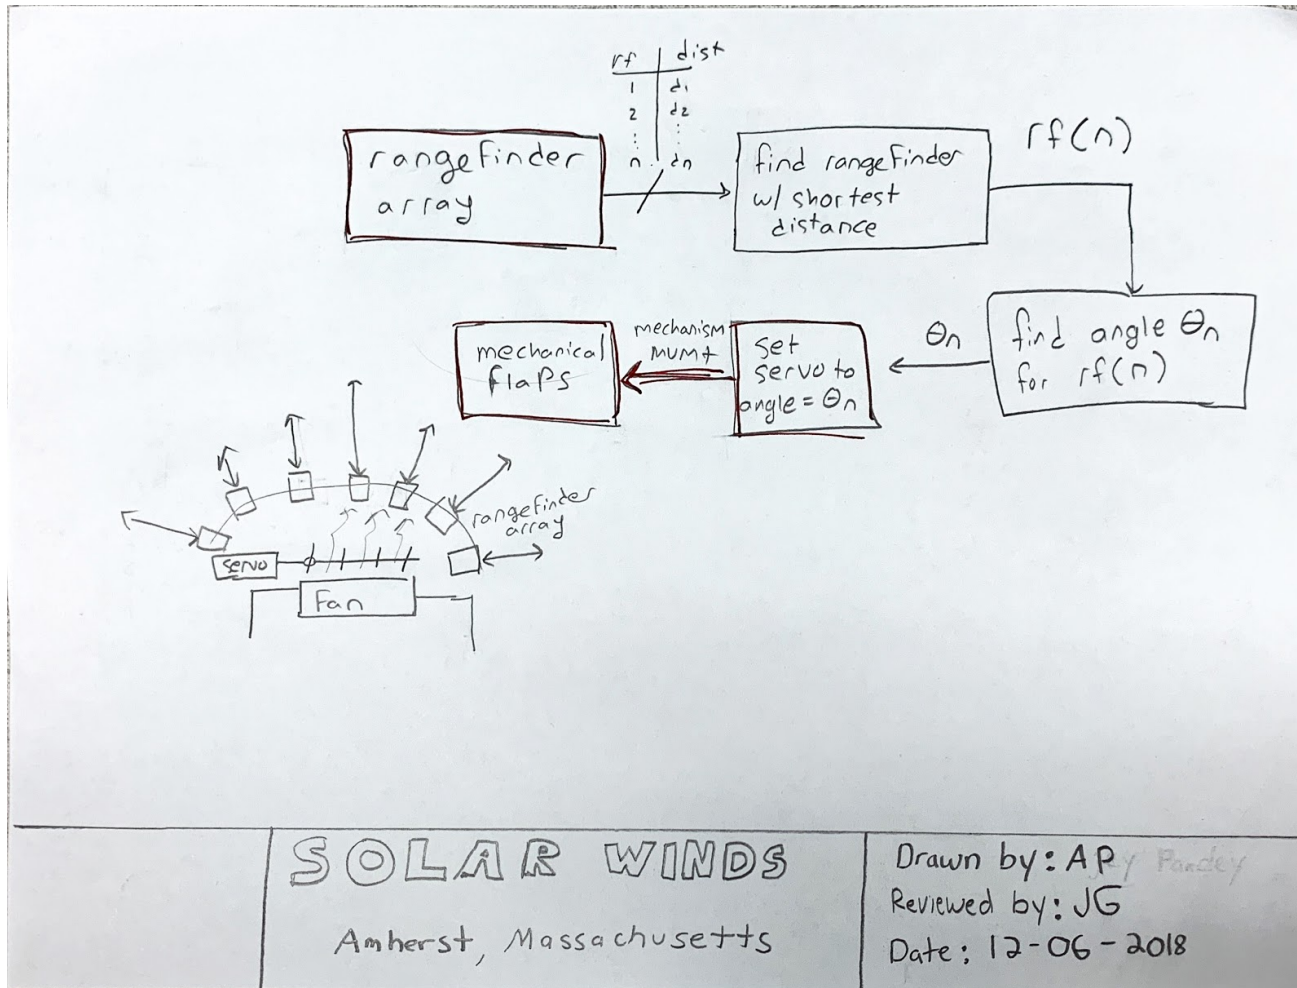 rf dist
1 d1
2 d2
⋮ ⋮
n dn
rangefinder
array
find rangefinder
w/ shortest
distance
rf(n)
find angle θn
for rf(n)
θn
set
servo to
angle = θn
mechanism
mvmt
mechanical
flaps
rangefinder
array
servo
Fan
SOLAR WINDS
Amherst, Massachusetts
Drawn by: AP
Reviewed by: JG
Date: 12-06-2018